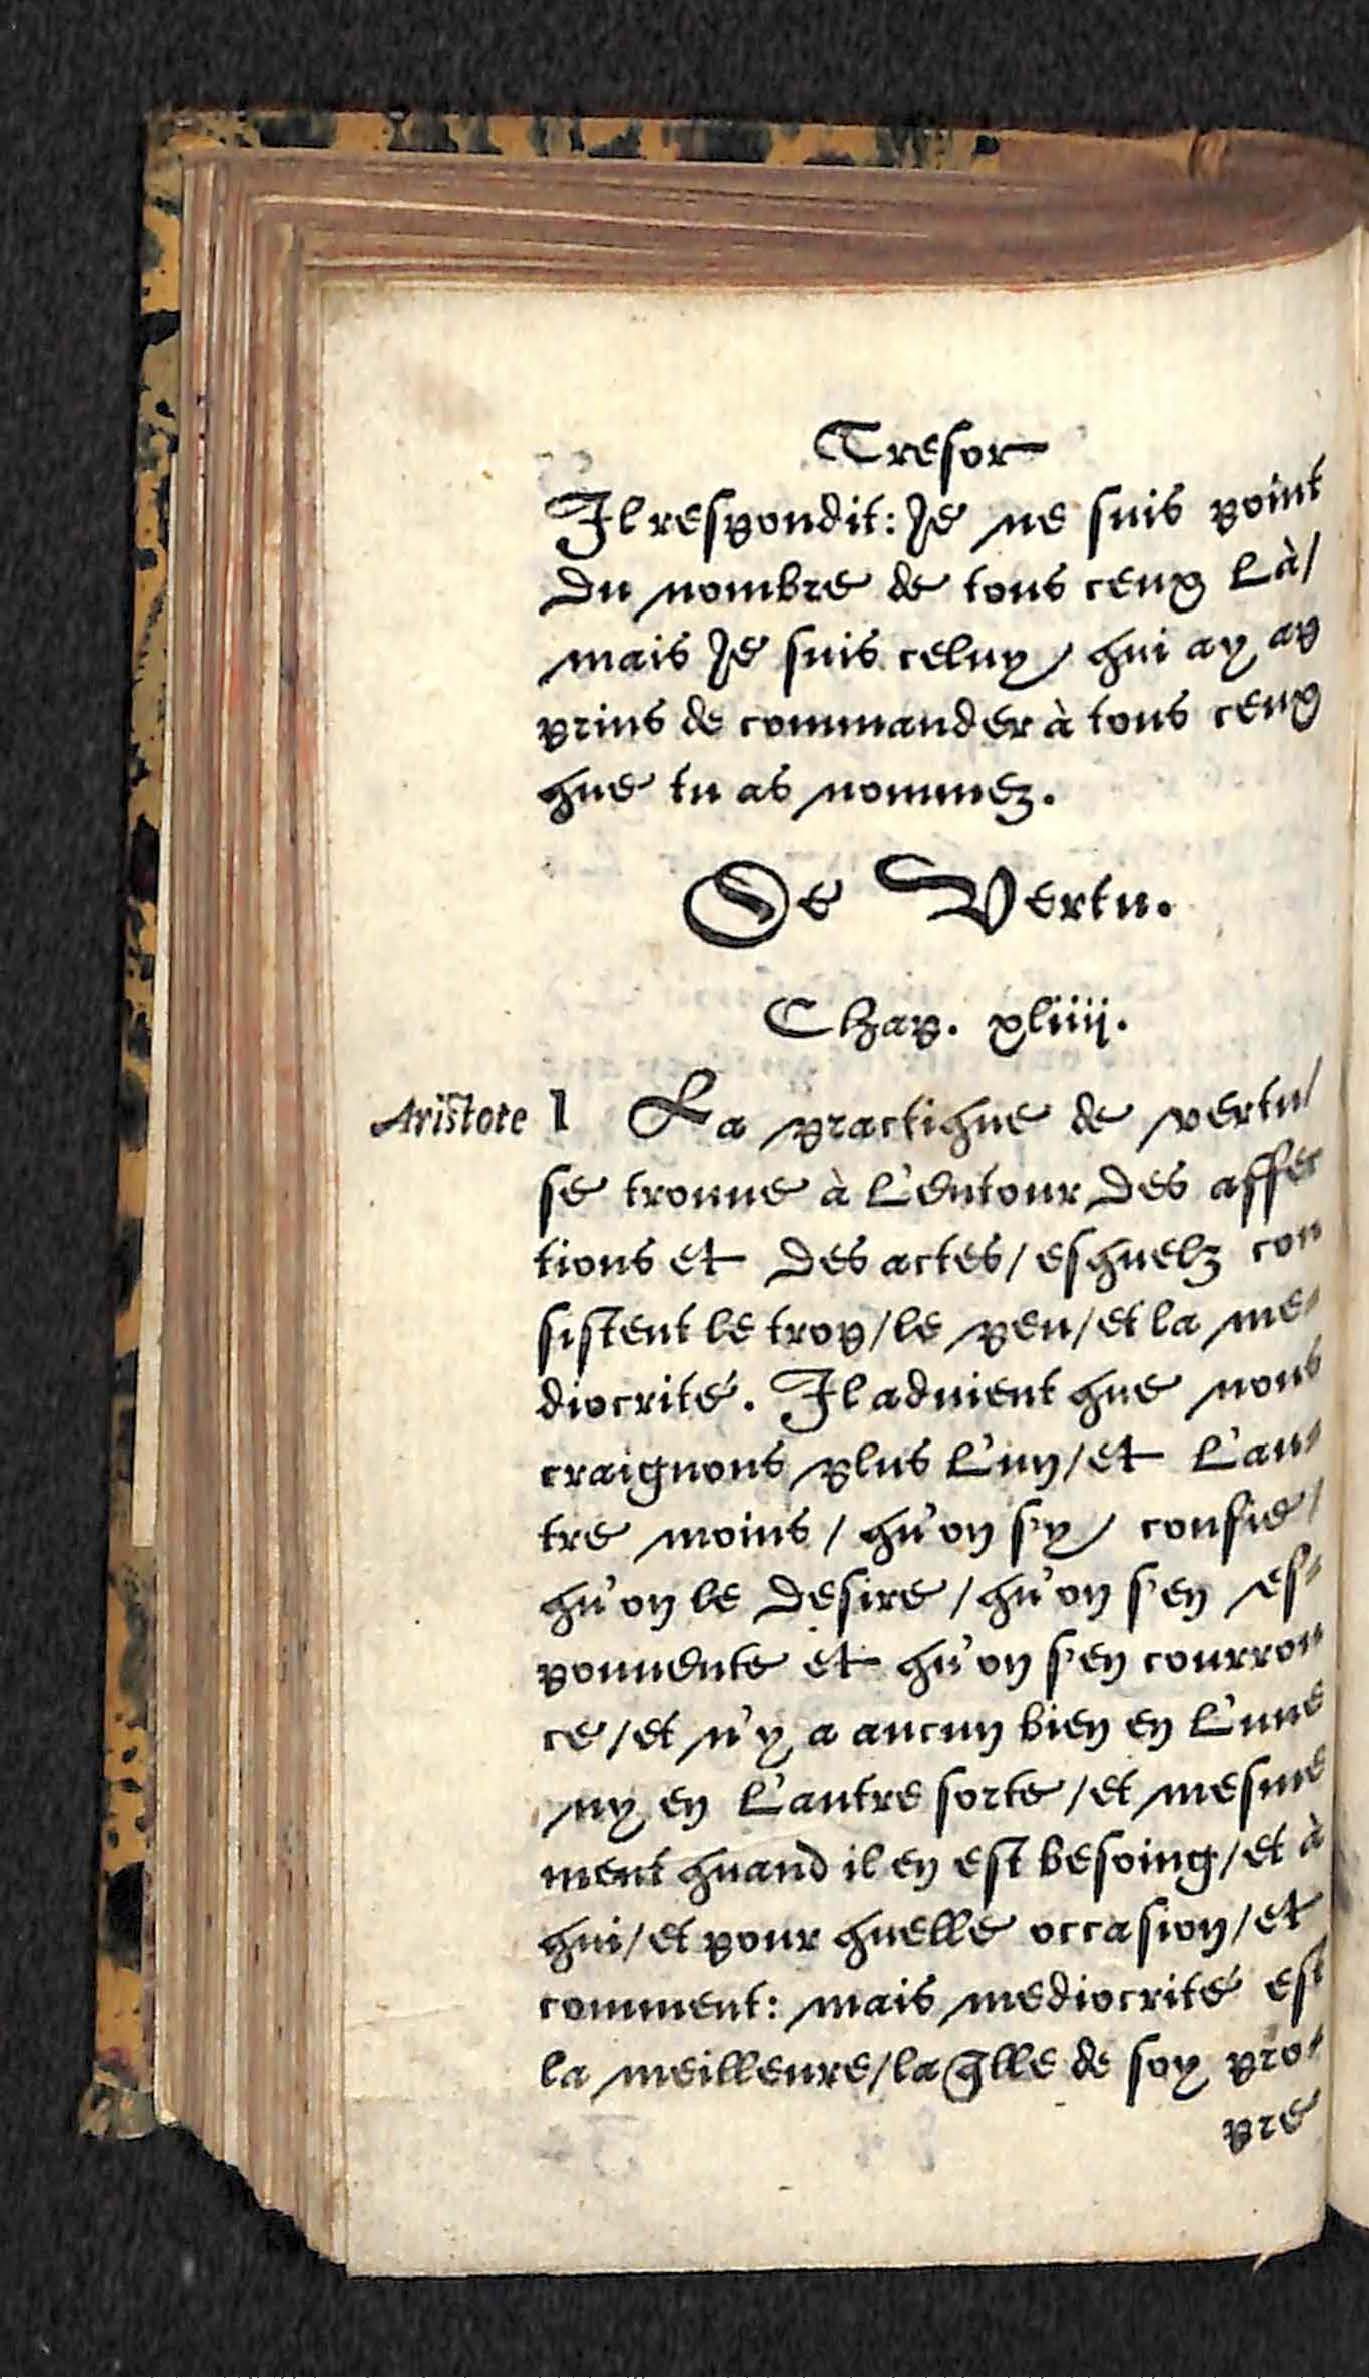 Tresor
Il respondit: Je ne suis point
du nombre de tous ceux là/
mais Je suis celuy/ qui ay ap
prins de commander à tous ceux
que tu as nommez.
De Vertu.
Chap. xliiij.
Aristote 1 La practique de vertu/
se trouue à l'entour des affec
tions et des actes/ esquelz con
sistent le trop/ le peu/ et la me-
diocrité. Il aduient que nous
craignons plus l'un/ et l'au-
tre moins/ qu'on s'y/ confie/
qu'on le desire/ qu'on s'en es-
pouuente et qu'on s'en courrou
ce/ et n'y a aucun bien en l'une
ny en l'autre sorte/ et mesme
ment quand il en est besoing/ et à
qui/ et pour quelle occasion/ et
comment: mais mediocrité est
la meilleure/ la q̃lle de soy pro-
pre